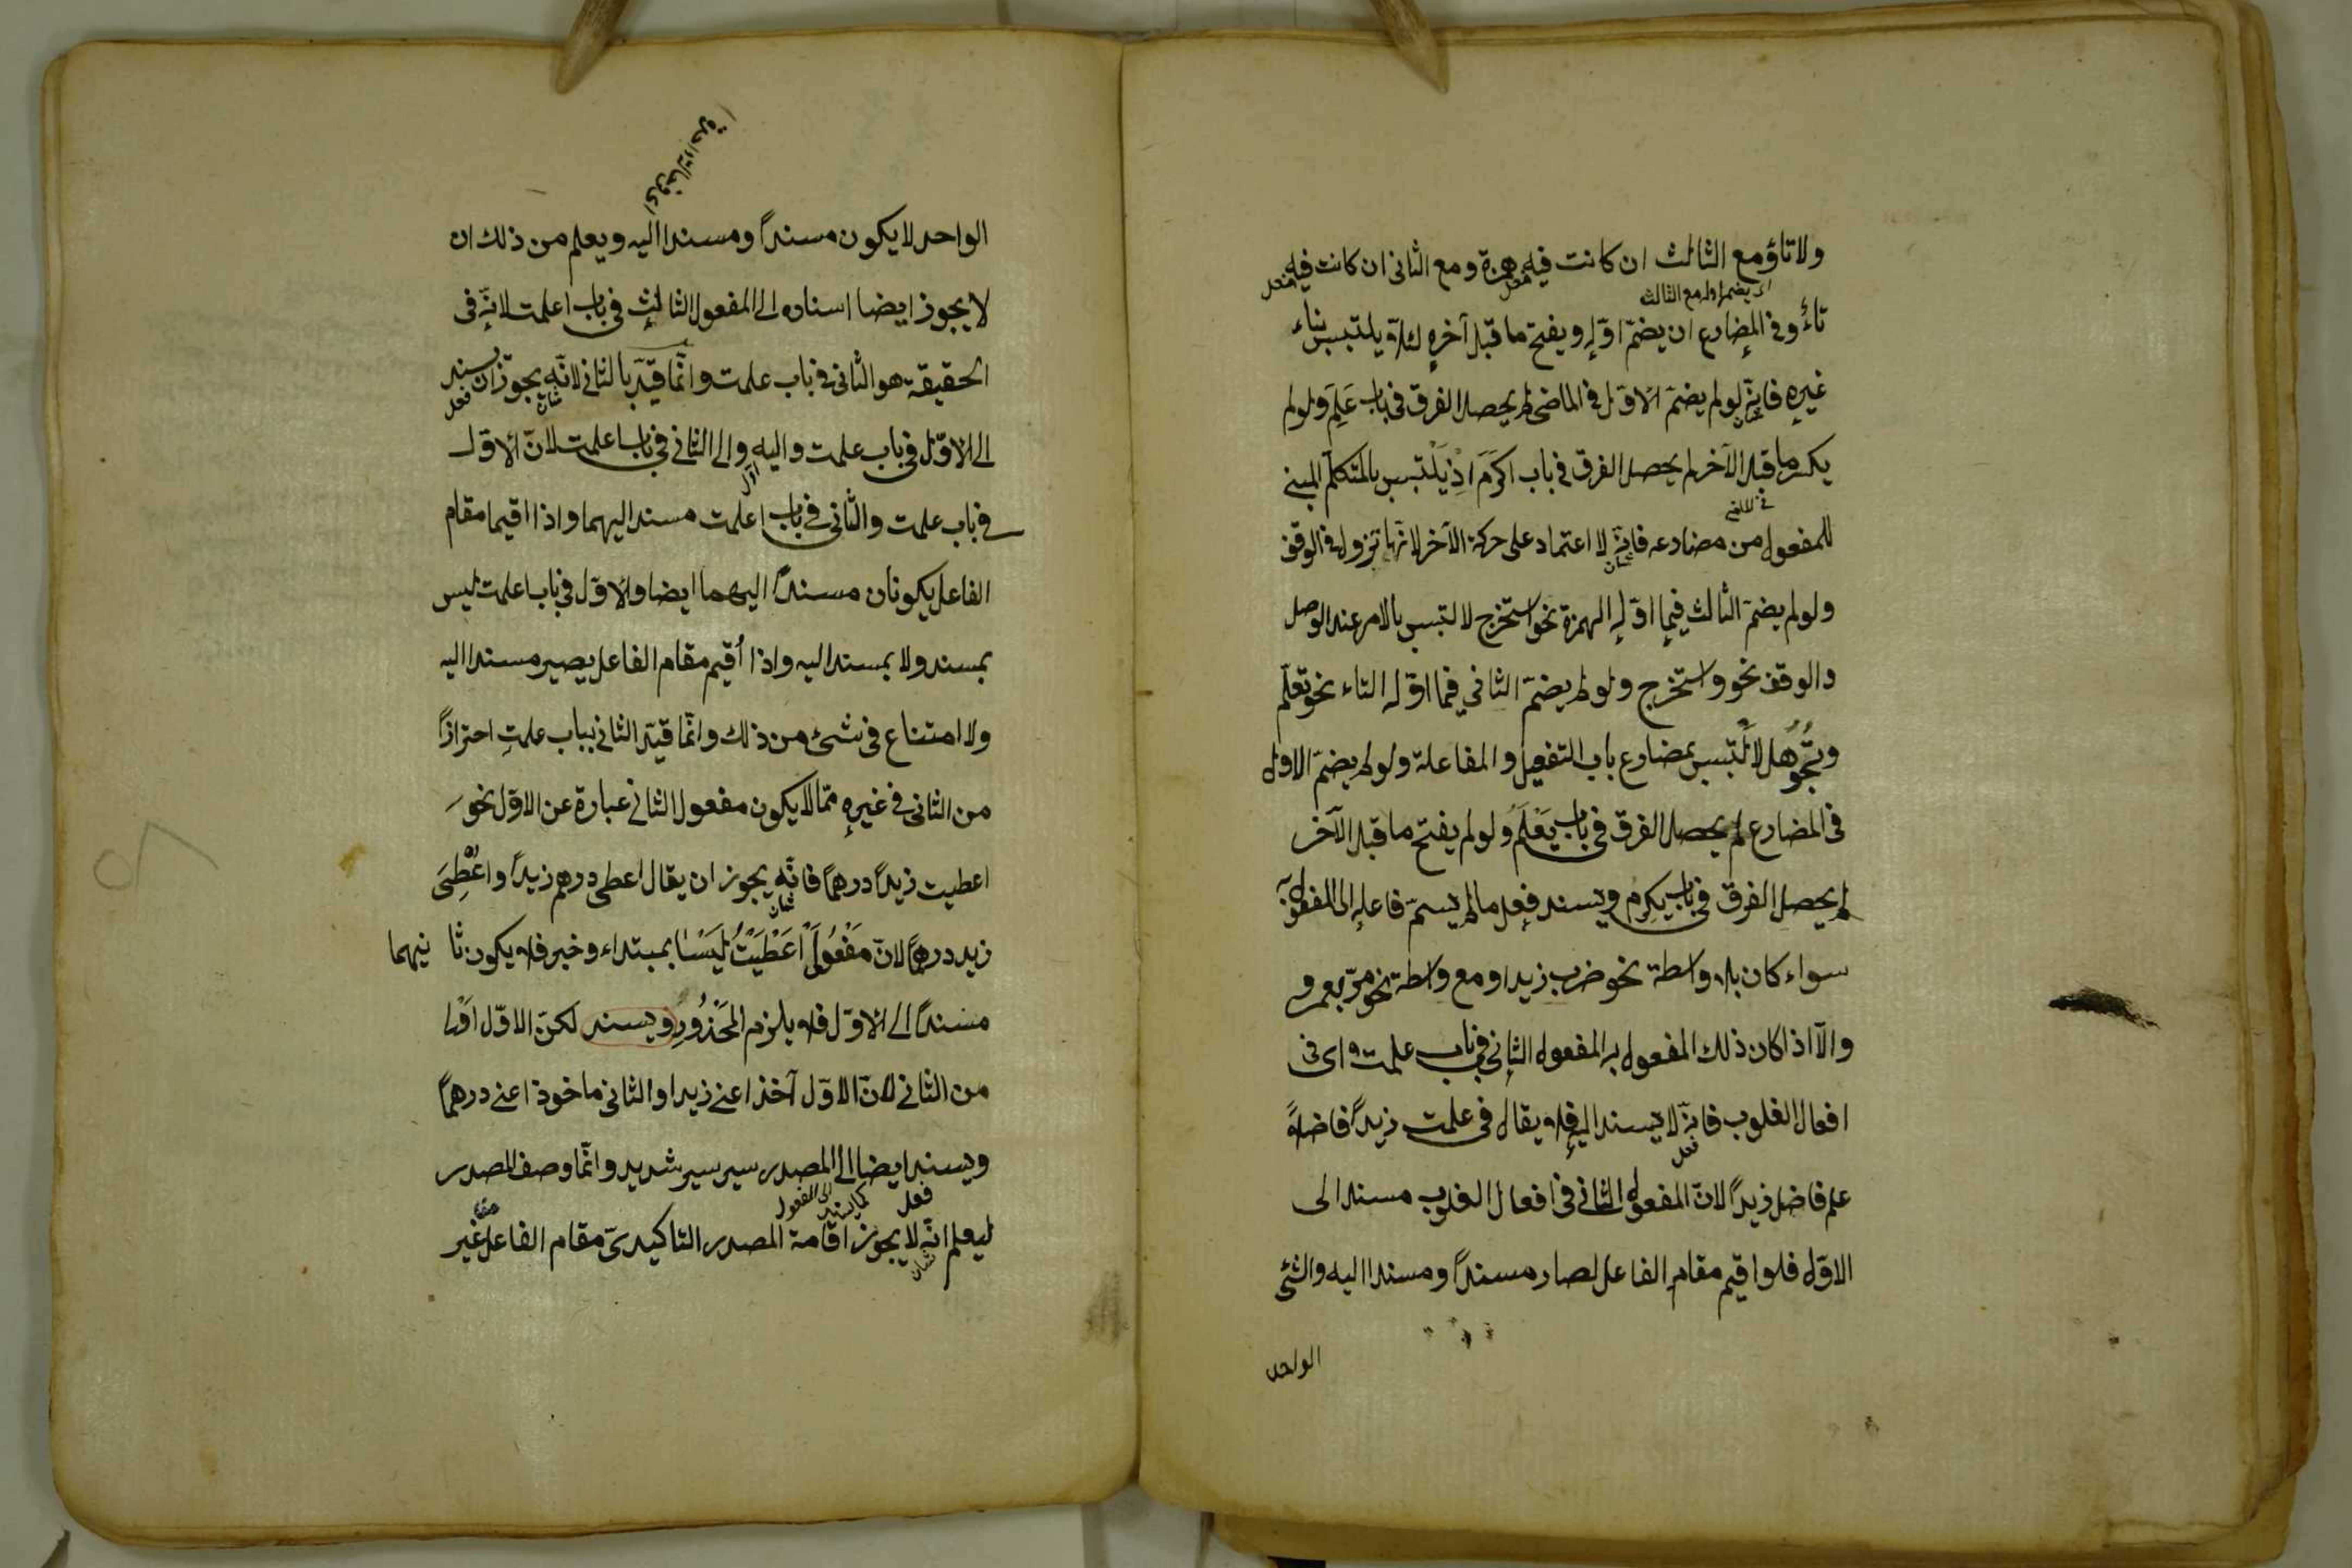 ولا تاؤ مع الثالث ان كانت فيه همزة ومع الثانى ان كانت فيه
اى يضم اوله مع الثالث
تاءٌ وفى المضارع ان يضمّ اوّله ويفتح ما قبل آخره لئلا يلتبس بناء
غيره فانّه لو لم يضمّ الاوّل فى الماضى لم يحصل الفرق فى باب عَلِمَ ولو لم
يكسر ما قبل الآخر لم يحصل الفرق فى باب اكرَمَ اذ يَلْتبس بالمتكلّم المبنى
للمفعول من مضارعه فانّه لا اعتماد على حركة الآخر لانّها تزول فى الوقف
ولو لم يضمّ الثالث فيما اوّله الهمزة نحو استخرج لالتبس بالامر عند الوصل
والوقف نحو واستخرج ولو لم يضمّ الثانى فيما اوّله التاء نحو تعلّم
وتُجُوهل لالْتبس بمضارع باب التفعيل والمفاعلة ولو لم يضمّ الاول
فى المضارع لم يحصل الفرق فى باب يَعْلَمُ ولو لم يفتح ما قبل الآخر
لم يحصل الفرق فى باب يكرم ويسند فعل ما لم يسمّ فاعله الى المفعول به
سواء كان بلا واسطة نحو ضرب زيد او مع واسطة نحو مرّ بعمرو
والّا اذا كان ذلك المفعول به المفعول الثانى فى باب علمت اى فى
افعال القلوب فانّه لا يسند اليه فلا يقال فى علمت زيداً فاضلاً
علم فاضل زيداً لانّ المفعول الثانى فى افعال القلوب مسند الى
الاوّل فلو اقيم مقام الفاعل لصار مسنداً ومسندا اليه والشئ
الواحد
الواحد لا يكون مسنداً ومسندا اليه ويعلم من ذلك ان
لا يجوز ايضا اسناده الى المفعول الثالث فى باب اعلمت لانّه فى
الحقيقة هو الثانى فى باب علمت وانّما قيّد بالثانى لانّه يجوز ان يسند
شان فعل
الى الاوّل فى باب علمت واليه والى الثانى فى باب اعلمت لانّ الاوّل
فى باب علمت والثانى فى باب اعلمت مسند اليهما واذا اقيما مقام
الفاعل يكونان مسنداً اليهما ايضا والاوّل فى باب اعلمت ليس
بمسند ولا بمسند اليه واذا أُقيم مقام الفاعل يصير مسندا اليه
ولا امتناع فى شئ من ذلك وانّما قيّد الثانى بباب علمتِ احترازاً
من الثانى فى غيره ممّا لا يكون مفعول الثانى عبارة عن الاوّل نحو
اعطيت زيداً درهماً فانّه يجوز ان يقال اعطى درهم زيداً واُعْطِىَ
شان
زيد درهماً لانّ مَفْعُولَىْ اَعْطَيْتُ لَيْسَا بمبتداء وخبر فلا يكون ثانيهما
مسنداً الى الاوّل فلا يلزم المَحْذُورُ ويسند لكنّ الاوّل اَوْلى
من الثانى لانّ الاوّل آخذ اعنى زيدا والثانى ماخوذ اعنى درهماً
ويسند ايضا الى المصدر سير سير شديد وانّما وصف المصدر
فعل كما يسند الى المفعول
ليعلم انّه لا يجوز اقامة المصدر التاكيدىّ مقام الفاعل غير
شان